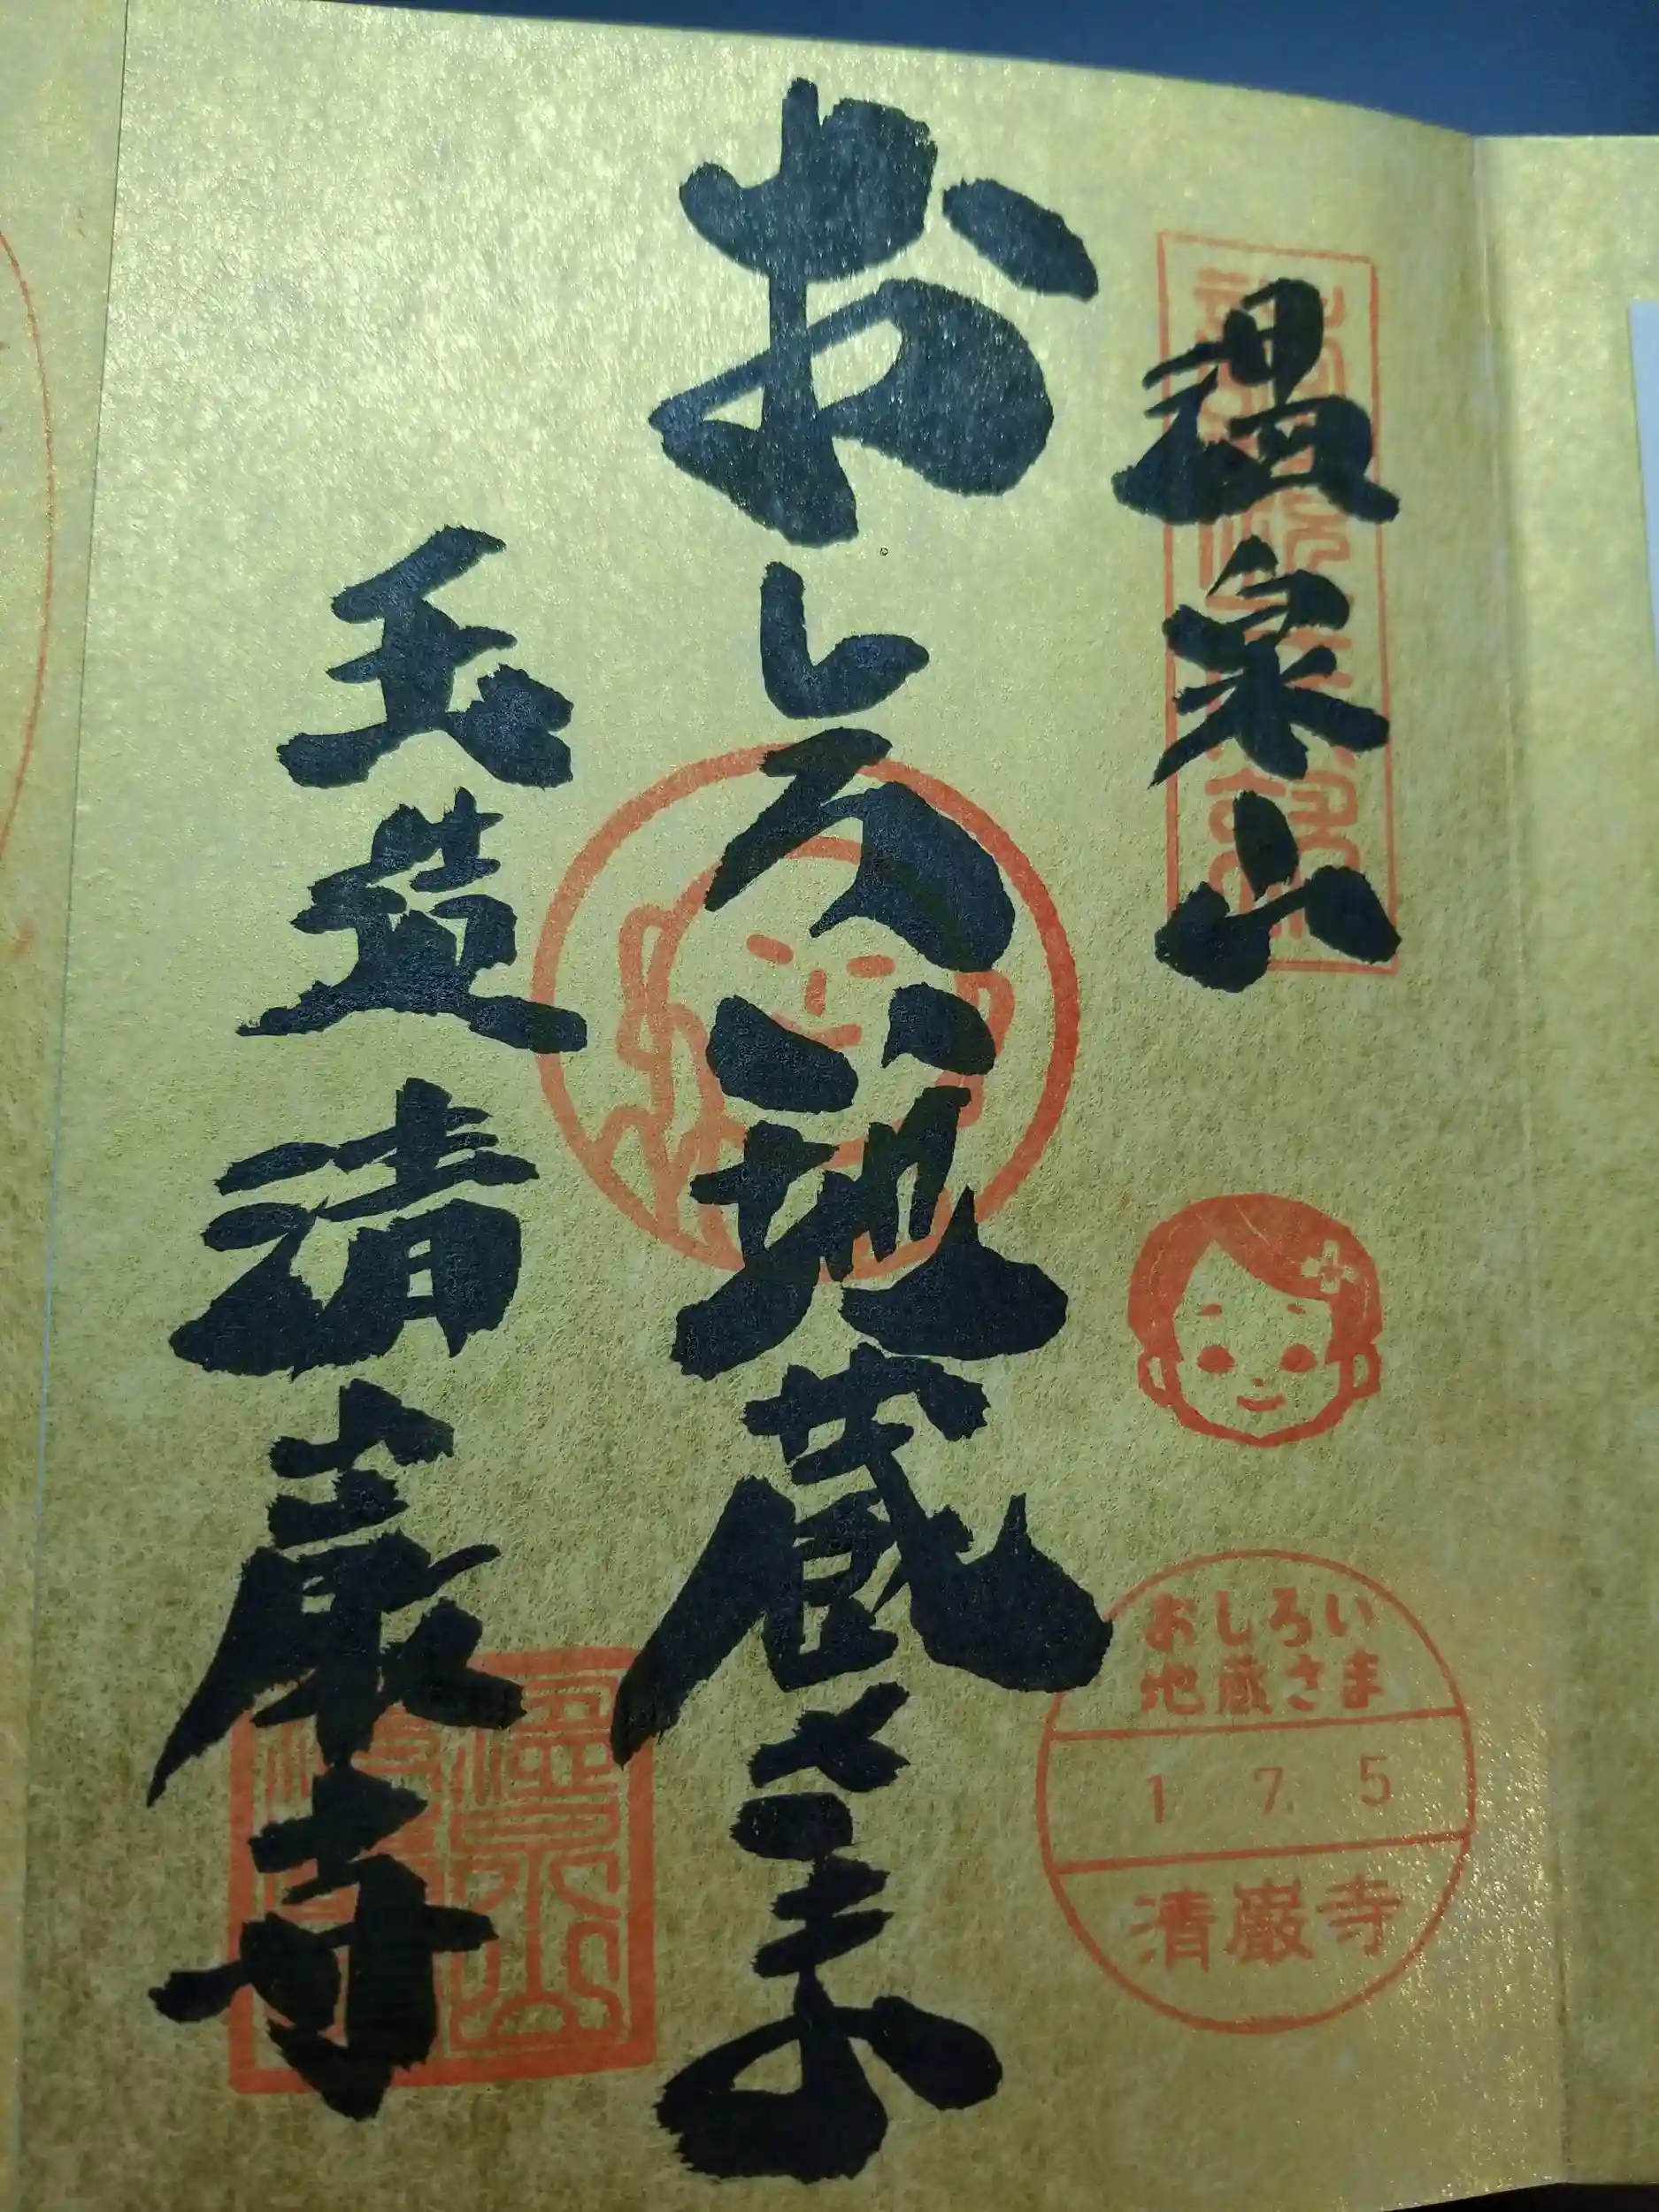 温泉山
おしろい地蔵さま
玉造 清巌寺
おしろい
地蔵さま
1 7. 5
清巌寺